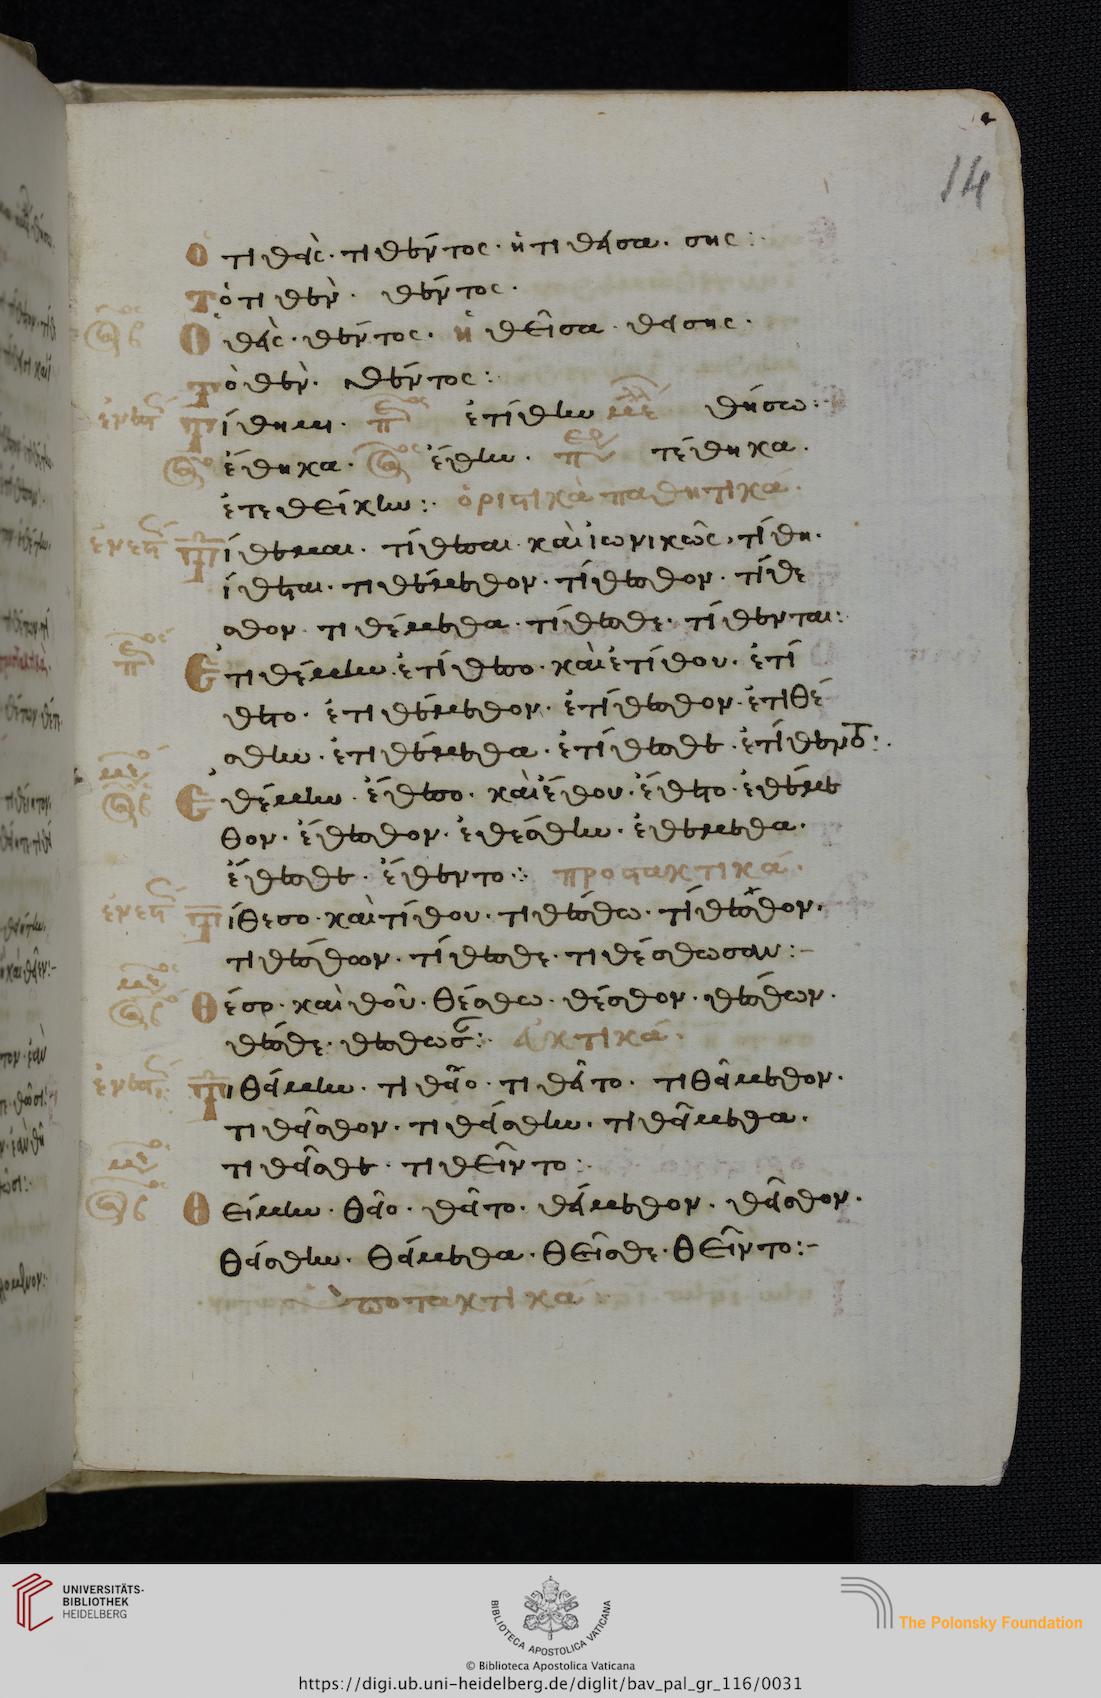 14
Ὁ τιθεὶς· τιθέντος· ἡ τιθεῖσα· σης:
Τὸ τιθὲν· θέντος·
Ὁ θεὶς· θέντος· ἡ θεῖσα· θείσης·
Τὸ θὲν· θέντος:
Τίθημι· ἐτίθην θήσω:
ἔθηκα· ἔθην· τέθηκα·
ἐτεθείκην: ὁριστικὰ παθητικά·
Τίθεμαι· τίθεσαι· καὶ ἰωνικῶς· τίθη·
τίθεται· τιθέμεθον· τίθεσθον· τίθε
σθον· τιθέμεθα· τίθεσθε· τίθενται:
Ἐτιθέμην· ἐτίθεσο· καὶ ἐτίθου· ἐτί
θετο· ἐτιθέμεθον· ἐτίθεσθον· ἐτιθέ
σθην· ἐτιθέμεθα· ἐτίθεσθε· ἐτίθεντο:
Ἐθέμην· ἔθεσο· καὶ ἔθου· ἔθετο· ἐθέμε
θον· ἔθεσθον· ἐθέσθην· ἐθέμεθα·
ἔθεσθε· ἔθεντο: προστακτικά·
Τίθεσο· καὶ τίθου· τιθέσθω· τίθεσθον·
τιθέσθων· τίθεσθε· τιθέσθωσαν:-
Θέσο· καὶ θοῦ· θέσθω· θέσθον· θέσθων·
θέσθε· θέσθωσαν: εὐκτικά·
Τιθείμην· τιθεῖο· τιθεῖτο· τιθείμεθον·
τιθεῖσθον· τιθείσθην· τιθείμεθα·
τιθεῖσθε· τιθεῖντο:
Θείμην· θεῖο· θεῖτο· θείμεθον· θεῖσθον·
θείσθην· θείμεθα· θεῖσθε· θεῖντο:-
ὑποτακτικά
UNIVERSITÄTS-
BIBLIOTHEK
HEIDELBERG
BIBLIOTECA APOSTOLICA VATICANA
The Polonsky Foundation
© Biblioteca Apostolica Vaticana
https://digi.ub.uni-heidelberg.de/diglit/bav_pal_gr_116/0031